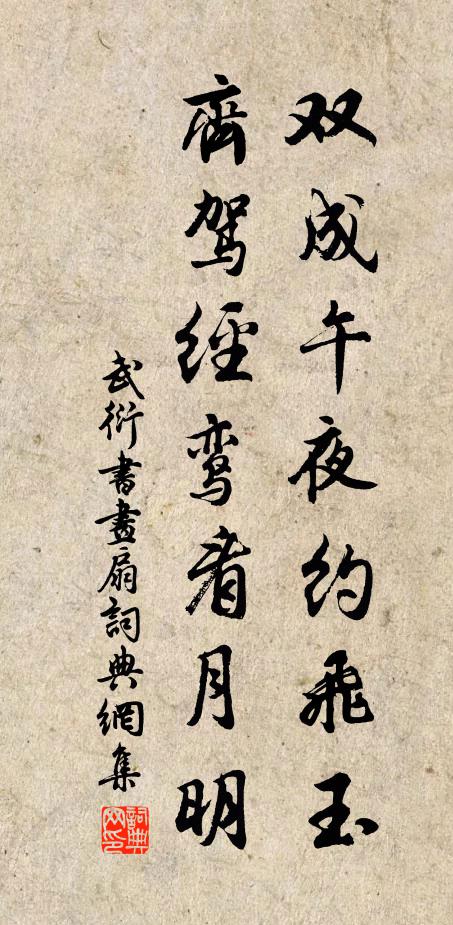 双成午夜约飛玉
齊驾經鸾看月明
武衍書畫扇詞典網集
詞典網印